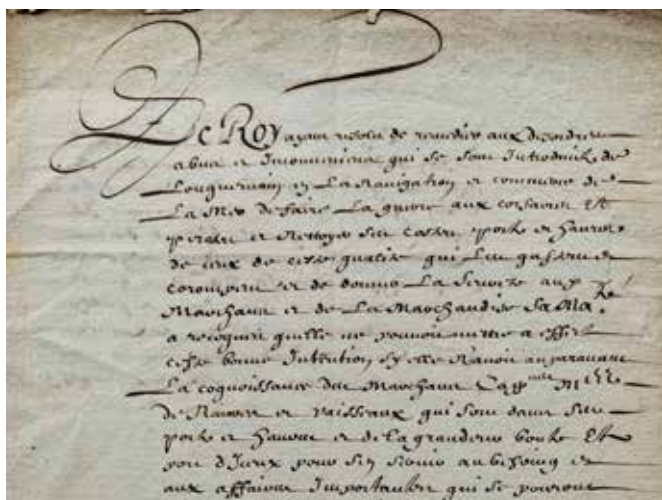 Le Roy ayant resolu de remedier aux desordres
abus et Inconveniens qui se sont Introduits de
Longuemain en La Navigation et commerce de
La Mer de faire La guerre aux corsaires Et
pirates et Nettoyer ses costes portz et havres
de ceux de ceste qualité qui Les gastent
corompent et de donner La seureté aux
Marchans et de La Marchandise sa Ma.té
a recogneu quelle ne pouvoit mettre a effect
ceste bonne Intention sy elle N'avoit auparavant
La cognoissance des Marchans Capp.nes M.res
de Navires et vaisseaux qui sont dans ses
portz et havres et de la grandeur bonté Et
port d'Iceux pour s'en servir au besoing et
aux affaires Importantes qui se pourront